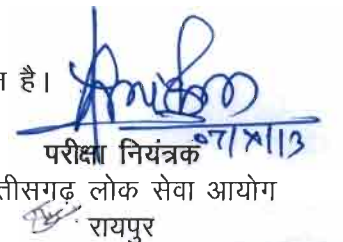 है।
07/XI/13
परीक्षा नियंत्रक
तीसगढ़ लोक सेवा आयोग
रायपुर